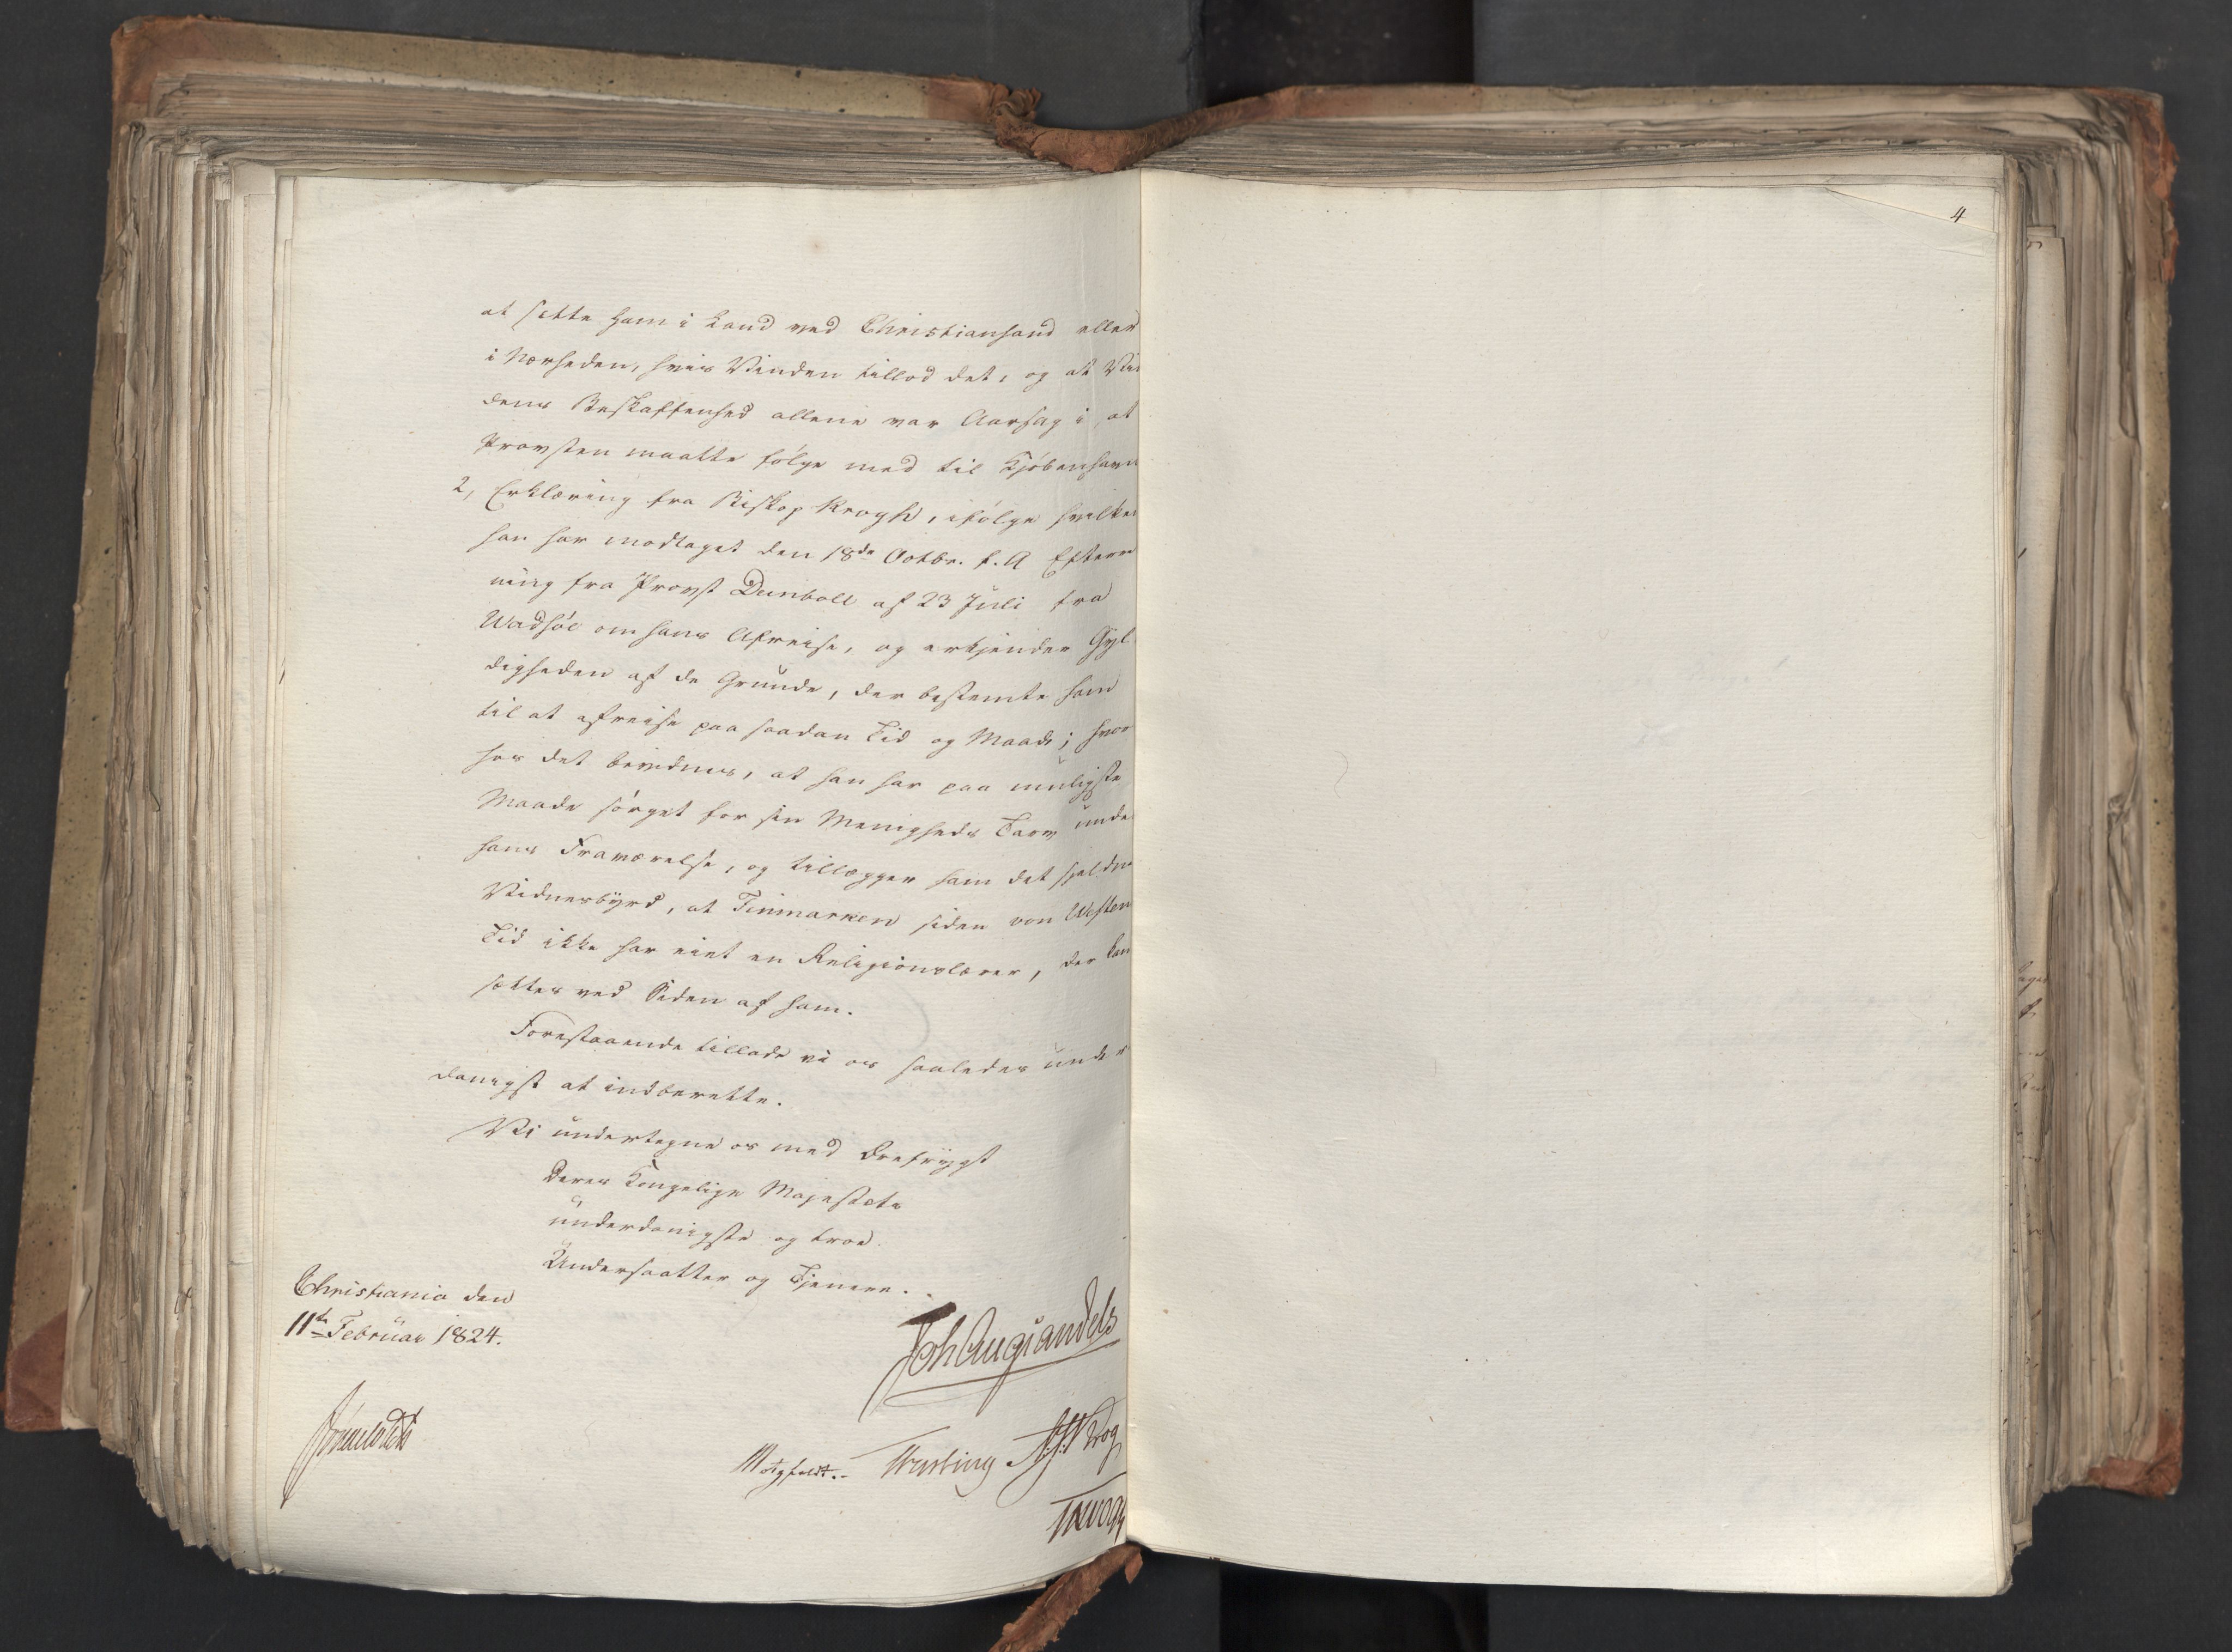 4
at sætte ham i Land ved Christiansand eller
i Nærheden, hvis Vinden tillod det, og at Vin
dens Beskaffenhed allene var Aarsag i, at
Provsten maatte følge med til Kjøbenhavn
2, Erklæring fra Biskop Krogh, ifølge hvilken
han har modtaget den 18de Octbr. f. A Efterre
ning fra Provst Deinboll af 23 Juli fra
Wadsøe om hans Afreise, og erkjender Gyl
digheden af de Grunde, der bestemte ham
til at afreise paa saadan Tid og Maade; hvor
hos det bevidnes, at han har paa muligste
Maade sørget for sin Menigheds Tarv unde
hans Fraværelse, og tillægger ham det sjeldne
Vidnesbyrd, at Finmarken siden von Westen
Tid ikke har eiet en Religionslærer, der kan
sættes ved Siden af ham.
Forestaaende tillade vi os saaledes under
danigst at indberette.
Vi undertegne os med Ærefrygt
Deres Kongelige Majestæts
underdanigste og troe
Undersaatter og Tjenere.
Christiania den
11te Februar 1824.
Joh Aug Sandels
Motzfeldt. Treschow